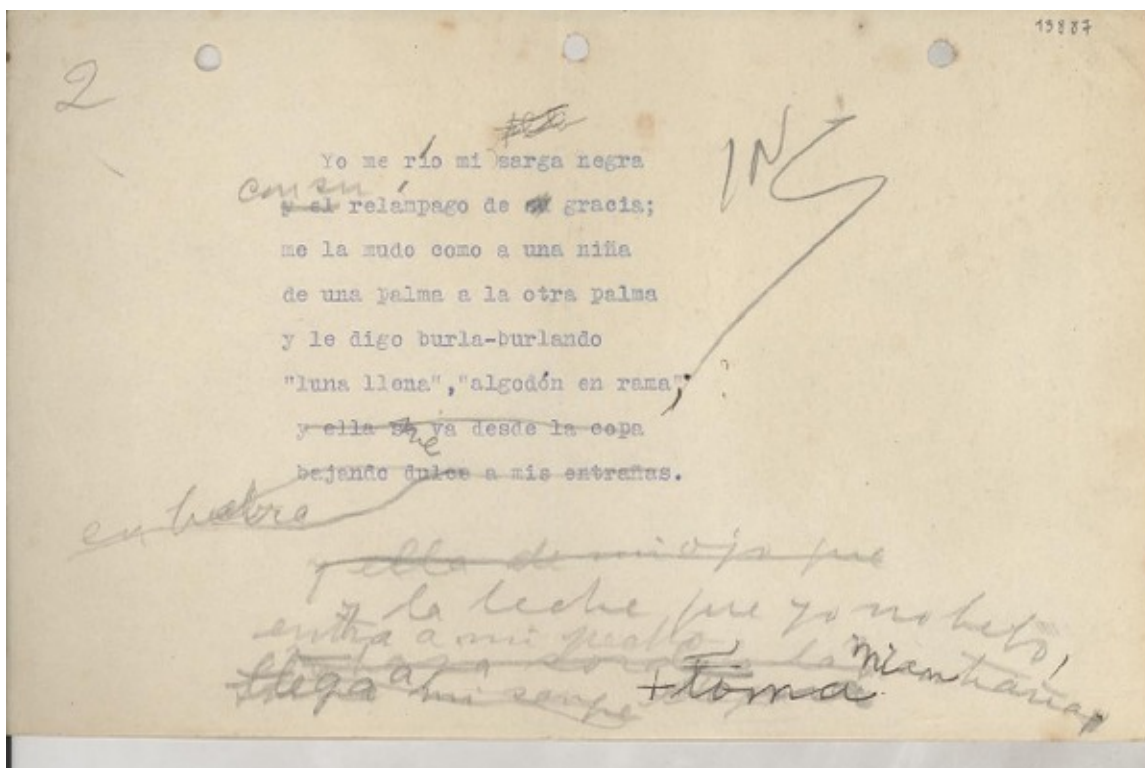 19887
2
Yo me río mi sarga negra
con su
y el relámpago de gracia;
me la mudo como a una niña
de una palma a la otra palma
y le digo burla-burlando
"luna llena","algodón en rama";
y ella se va desde la copa
me
bajando dulce a mis entrañas.
en hebra
y ella de mi ojo que
y la leche que yo no bebo,
entra a mi pecho,
mi entraña
llega a mi sangre toma